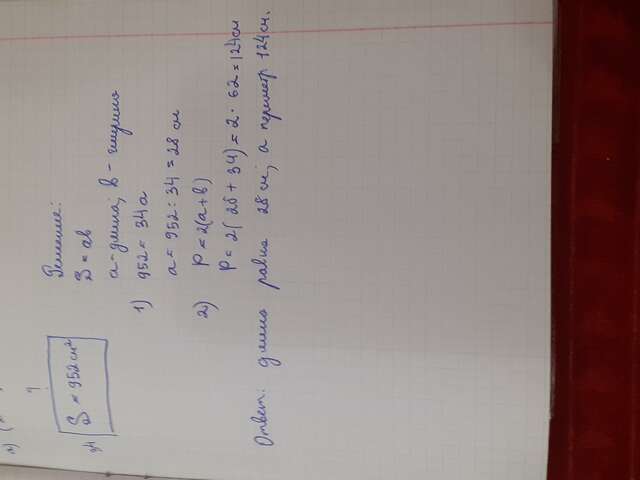 ?
S = 952 см²
34
Решение:
S = ab
a - длина; b - ширина
1) 952 = 34a
a = 952 : 34 = 28 см
2) P = 2(a+b)
P = 2(28 + 34) = 2 · 62 = 124 см
Ответ: длина равна 28 см; а периметр 124 см.